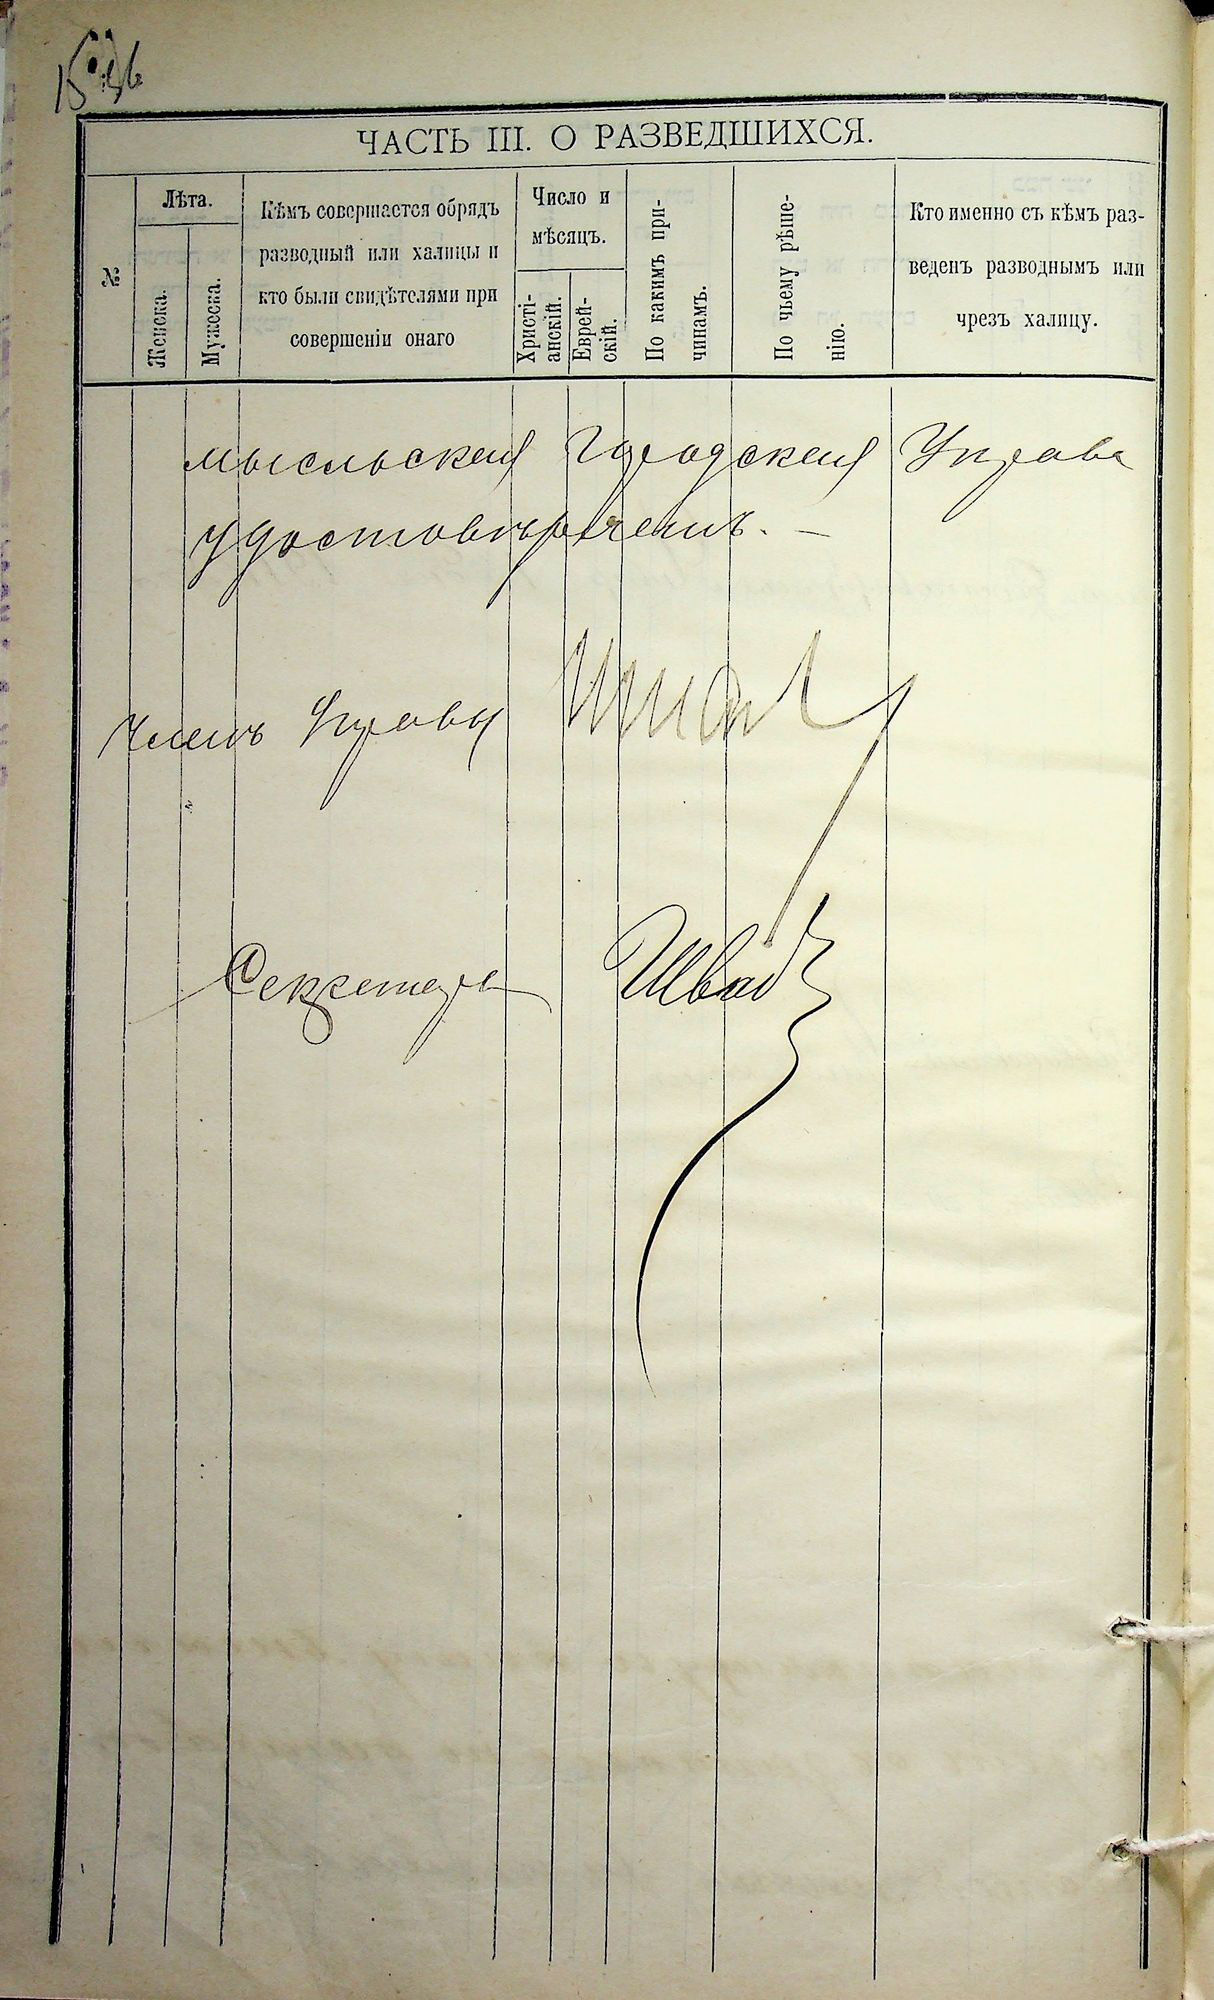 ЧАСТЬ III. О РАЗВЕДШИХСЯ.
№
Лѣта.
Женска.
Мужеска.
Кѣмъ совершается обрядъ
разводный или халицы и
кто были свидѣтелями при
совершеніи онаго
Число и
мѣсяцъ.
Христі-
анскій.
Еврей-
скій.
По какимъ при-
чинамъ.
По чьему рѣше-
нію.
Кто именно съ кѣмъ раз-
веденъ разводнымъ или
чрезъ халицу.
мысльская Городская Управа
удостовѣряетъ. –
Членъ Управы
Секретарь